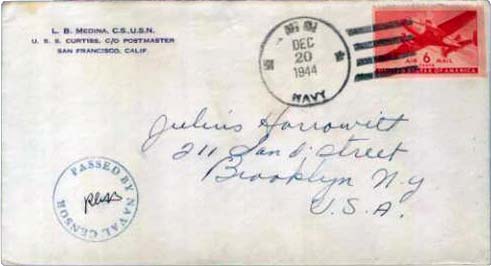 L. B. MEDINA, C.S., U.S.N.
U. S. S. CURTISS, C/O POSTMASTER
SAN FRANCISCO, CALIF.
DEC
20
1944
NAVY
AIR 6 MAIL
CENTS
UNITED STATES OF AMERICA
Julius Horrowitt
211 Sand's Street
Brooklyn N.Y
U.S.A.
PASSED BY NAVAL CENSOR